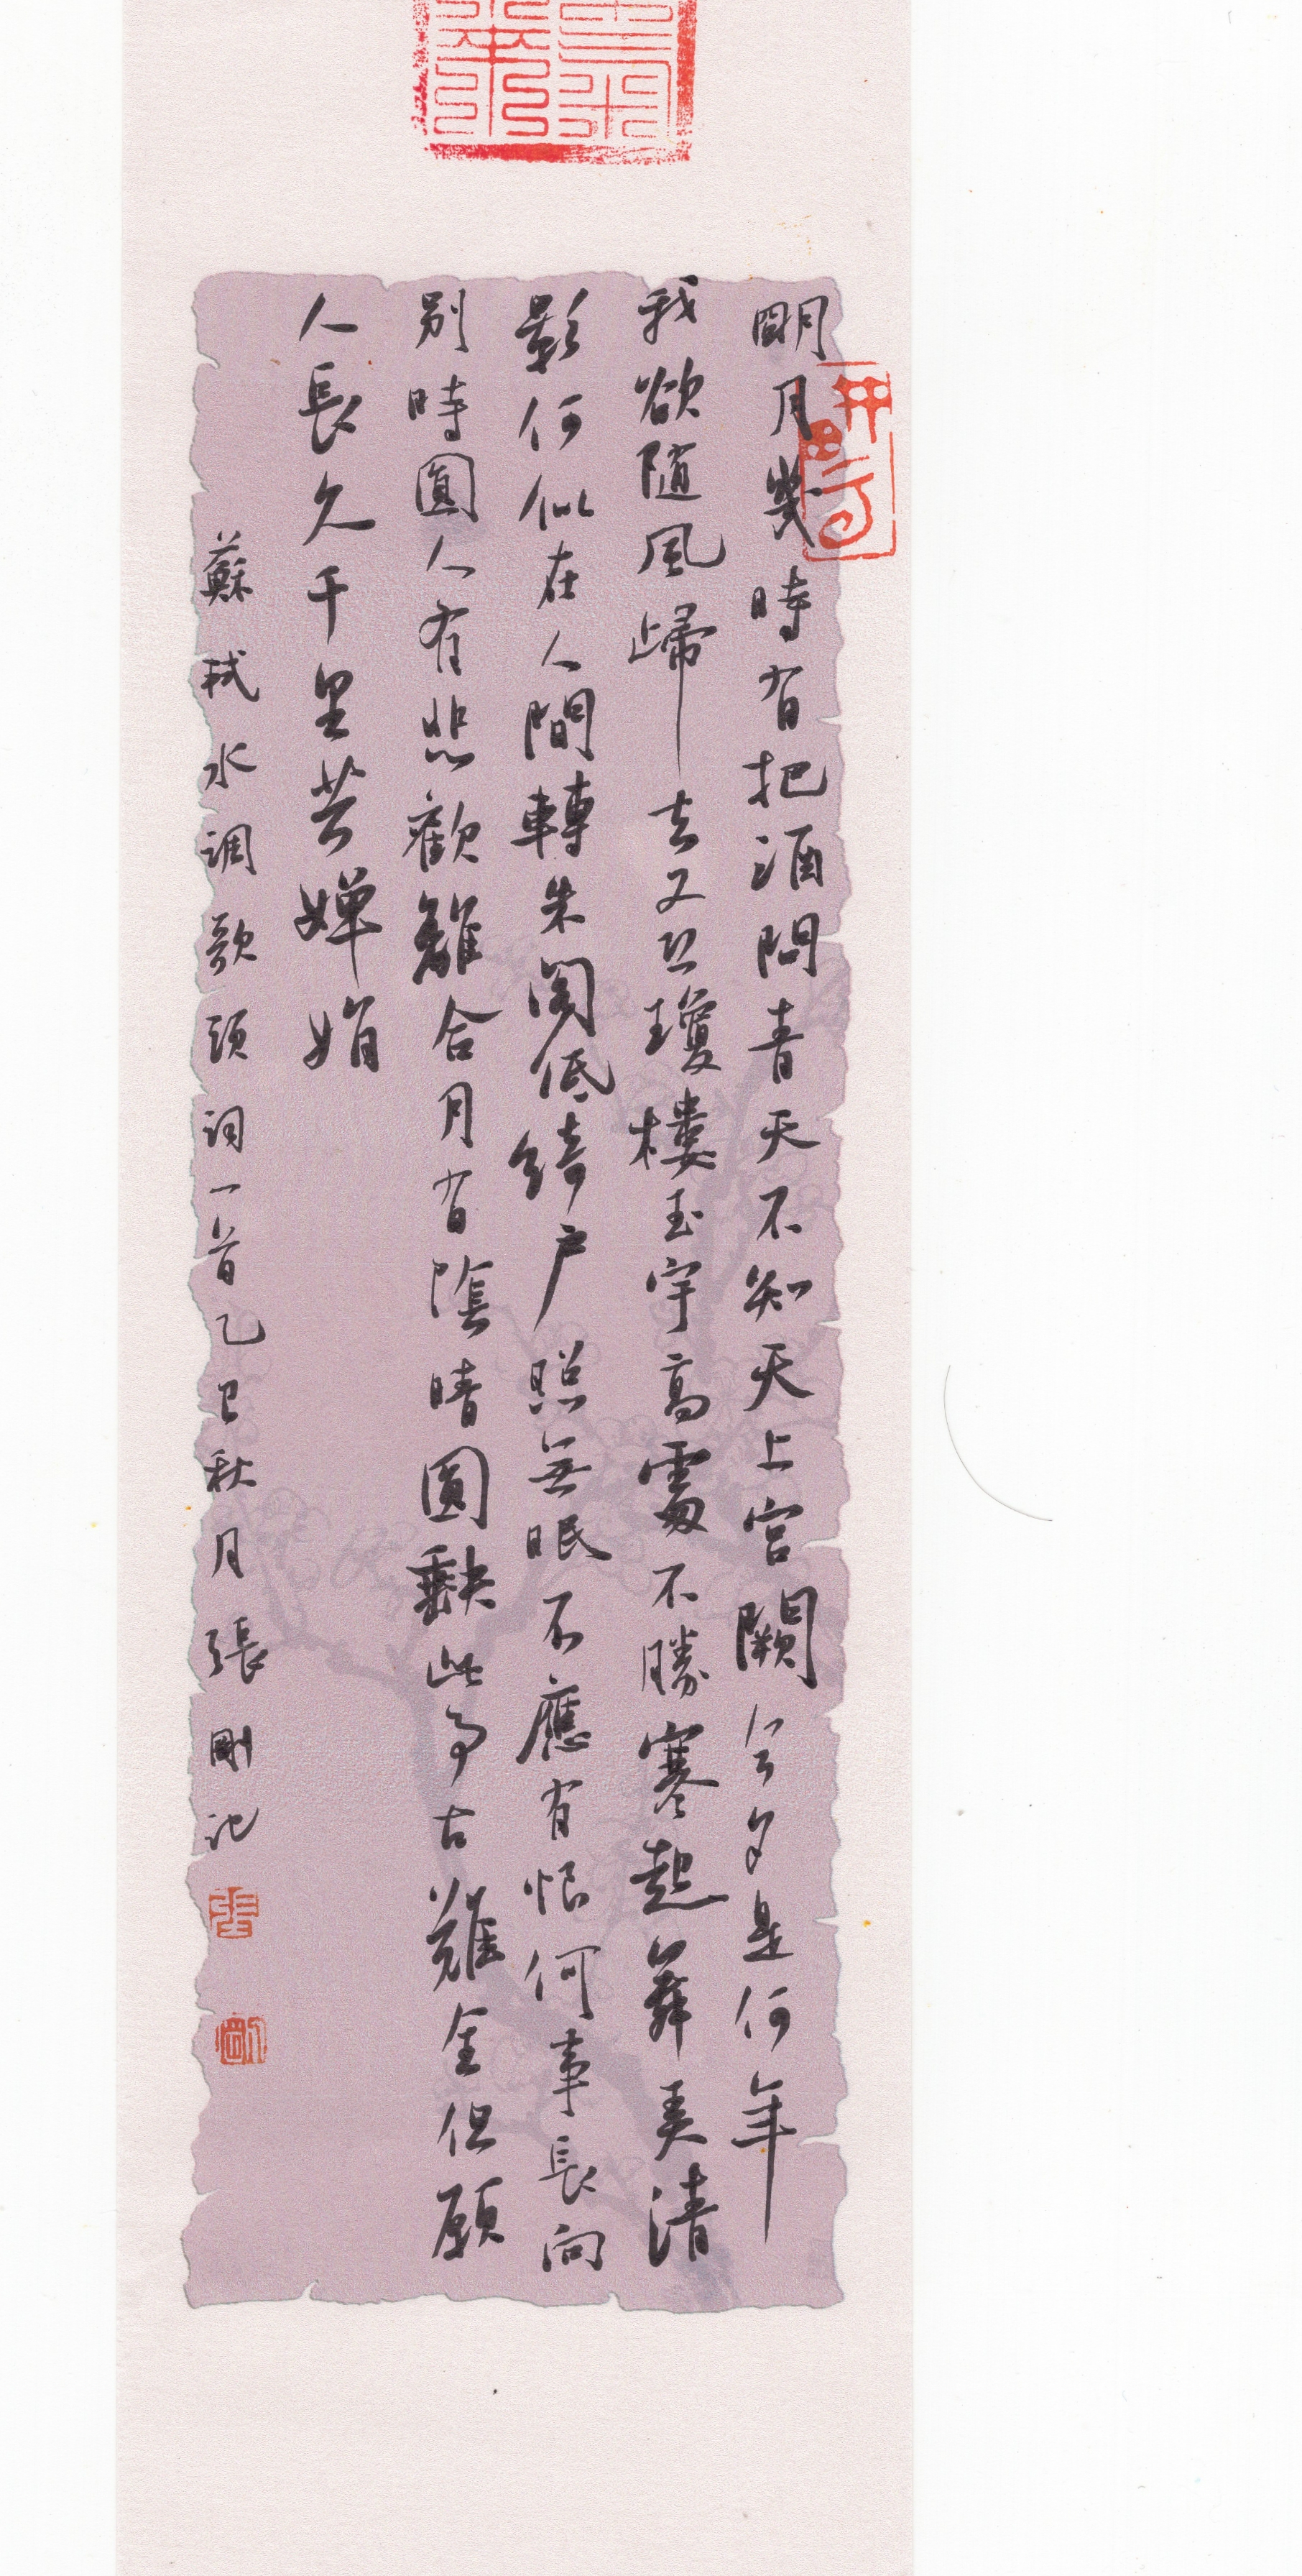 明月幾時有把酒問青天不知天上宮闕今夕是何年
我欲隨風歸去又恐瓊樓玉宇高處不勝寒起舞弄清
影何似在人間轉朱閣低綺户照無眠不應有恨何事長向
别時圓人有悲歡離合月有陰晴圓缺此事古難全但願
人長久千里共嬋娟
蘇軾水調歌頭詞一首乙巳秋月張剛記